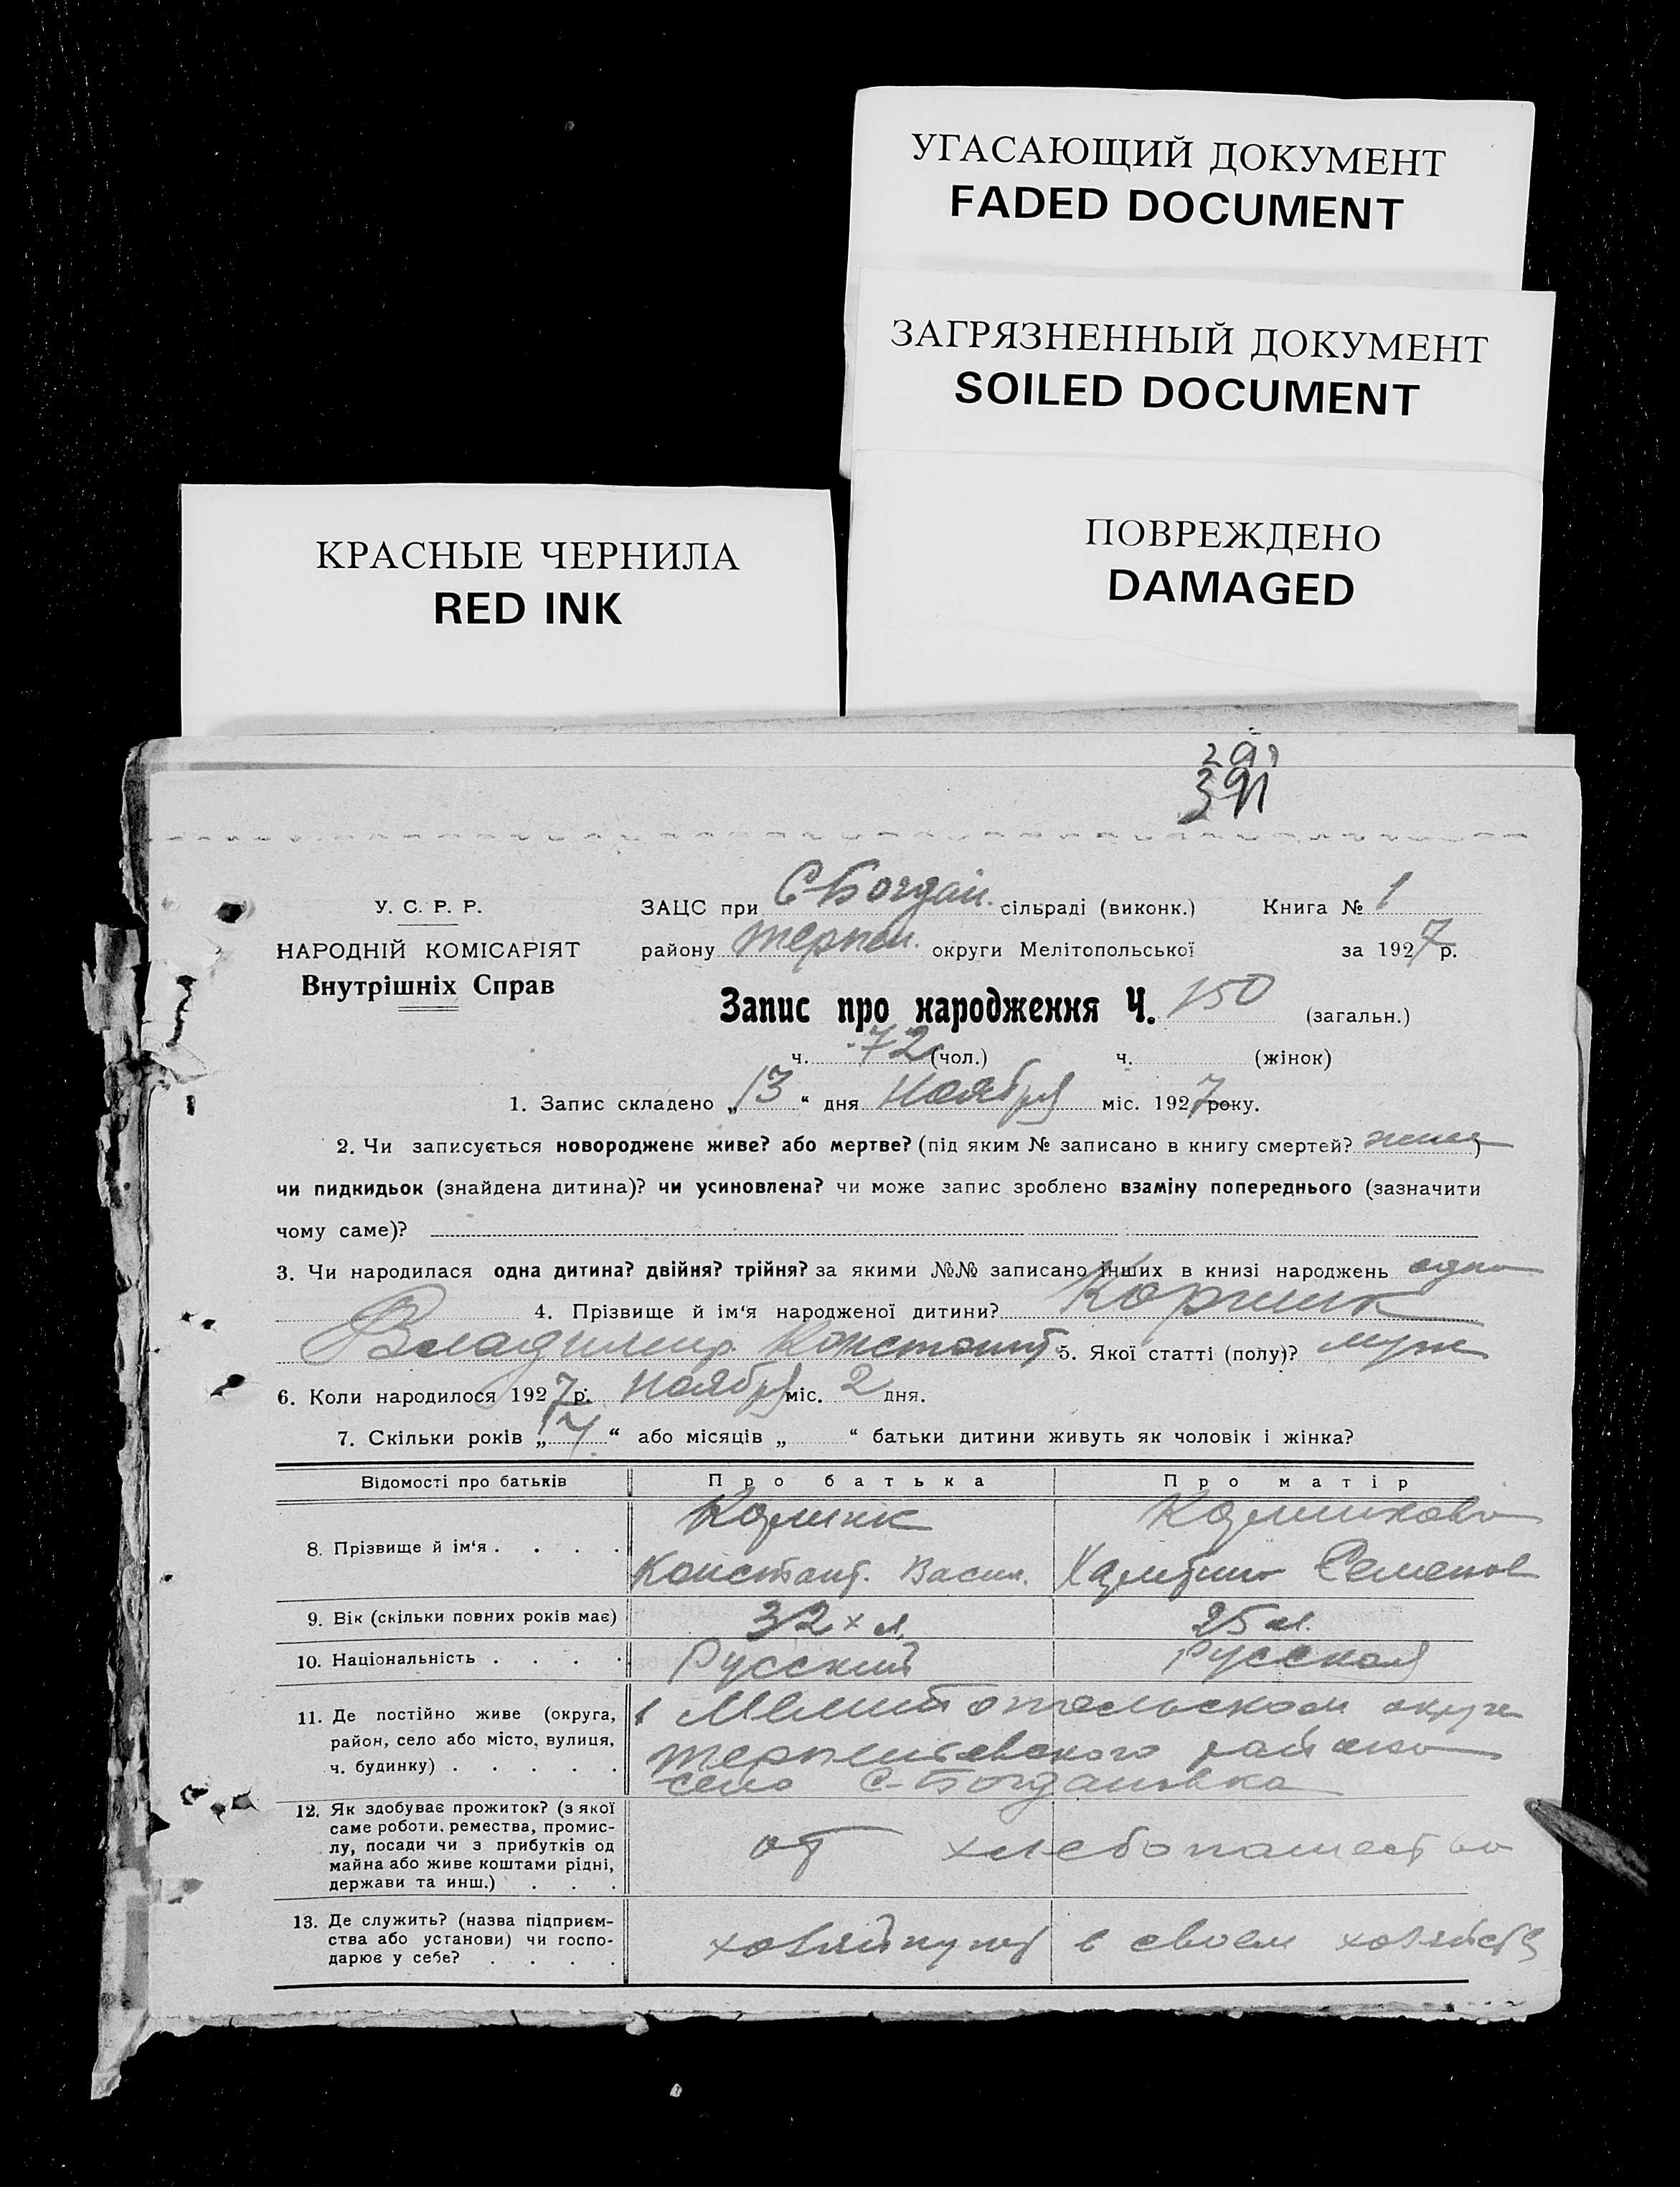 УГАСАЮЩИЙ ДОКУМЕНТ
FADED DOCUMENT
ЗАГРЯЗНЕННЫЙ ДОКУМЕНТ
SOILED DOCUMENT
ПОВРЕЖДЕНО
DAMAGED
КРАСНЫЕ ЧЕРНИЛА
RED INK
391
У. С. Р. Р.
НАРОДНІЙ КОМІСАРІЯТ
Внутрішніх Справ
ЗАЦС при С-Богдан. сільраді (виконк.) Книга № 1
району Терпен. округи Мелітопольської за 1927 р.
Запис про народження Ч. 150 (загальн.)
ч. 72 (чол.) ч. (жінок)
1. Запис складено „13“ дня Ноября міс. 1927 року.
2. Чи записується новороджене живе? або мертве? (під яким № записано в книгу смертей?)
чи пидкидьок (знайдена дитина)? чи усиновлена? чи може запис зроблено взаміну попереднього (зазначити
чому саме)?
3. Чи народилася одна дитина? двійня? трійня? за якими №№ записано інших в книзі народжень одно
4. Прізвище й ім‘я народженої дитини?
Владимир Констант 5. Якої статті (полу)? муж
6. Коли народилося 1927 р. Ноября міс. 2 дня.
7. Скільки років „ “ або місяців „ “ батьки дитини живуть як чоловік і жінка?
Відомості про батьків Про батька Про матір
8. Прізвище й ім‘я . . . .
Констант. Васил. Семенов
9. Вік (скільки повних років має) 32х л. 25 л.
10. Національність . . . . Русский Русская
11. Де постійно живе (округа, район, село або місто, вулиця, ч. будинку) . . . . .
в Мелитопольском округе
Терпеньевского района
село С-Богдановка
12. Як здобуває прожиток? (з якої саме роботи. ремества, промислу, посади чи з прибутків од майна або живе коштами рідні, держави та инш.) . . .
от хлебопашества
13. Де служить? (назва підприємства або установи) чи господарює у себе? . . . .
хозяйнуют в своем хозяйстве